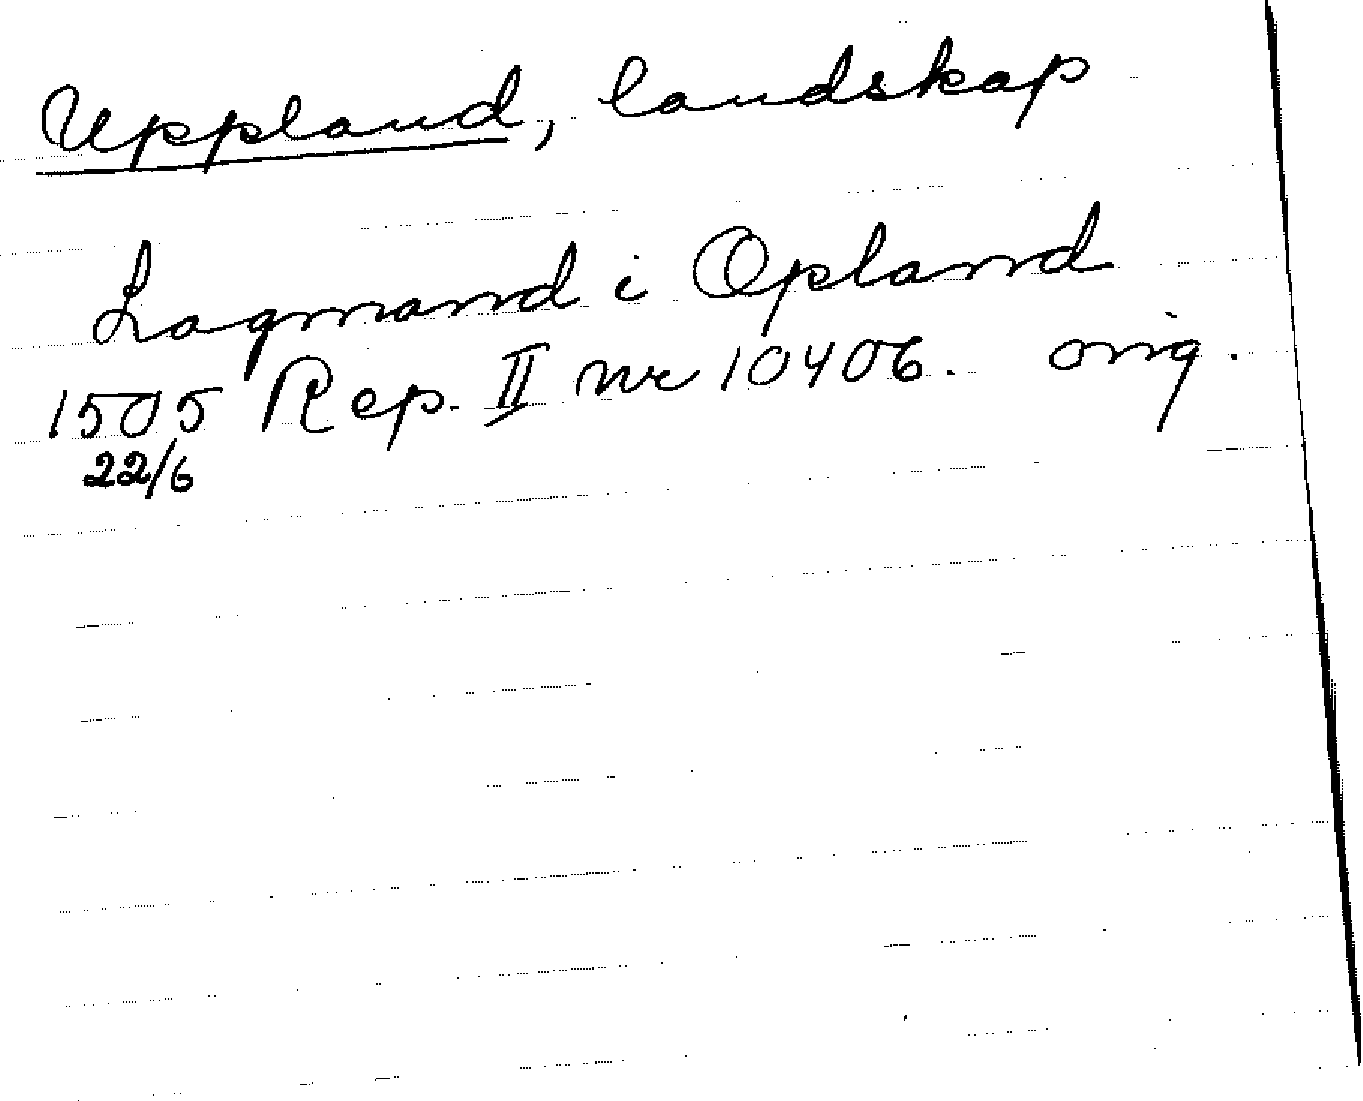 Uppland, landskap
Lagmand i Opland
1505 Rep. II nr 10406. orig.
22/6